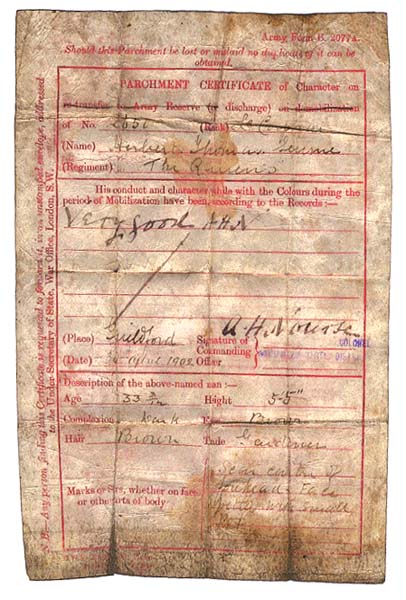 Army Form B. 2077A.
Should this Parchment be lost or mislaid no duplicate of it can be
obtained.
PARCHMENT CERTIFICATE of Character on
re-transfer to Army Reserve (or discharge) on demobilization
of No. (Rank)
(Name) Herbert Thomas
(Regiment) The Queens
His conduct and character while with the Colours during the
period of Mobilization have been, according to the Records :—
Very good AHN
(Place) Guildford Signature of
Commanding
Officer
A H Nourse
COLONEL
(Date) 1902
Description of the above-named man :—
Age 33 Height 5'5"
Complexion Dark Eyes Brown
Hair Brown Trade Gardener
Marks or Scars, whether on face
or other parts of body
Scar centre of
forehead Face
N.B. Any person finding this Certificate is requested to forward it, in an unstamped envelope, addressed
to the Under Secretary of State, War Office, London, S.W.